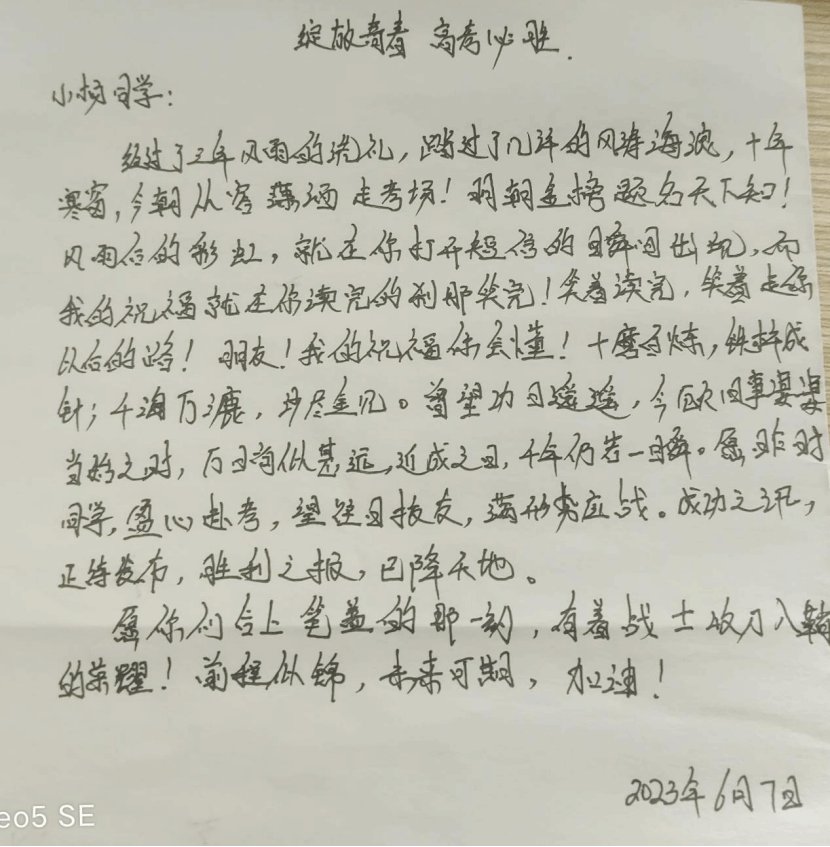 绽放青春 高考必胜.
小杨同学：
经过了三年风雨的洗礼，踏过了几年的风涛海浪，十年
寒窗，今朝从容潇洒走考场！明朝金榜题名天下知！
风雨后的彩虹，就在你打开短信的瞬间出现，而
我的祝福就在你读完的刹那笑完！笑着读完，笑着走你
以后的路！朋友！我的祝福你会懂！十磨百炼，铁杵成
针；千淘万漉，沙尽金见。昔望功日遥遥，今顾旧事宴宴
当始之时，万日詢似甚远，近成之日，千年仍若一瞬。愿昨时
同学，盈心赴考，望往日故友，满形奔应战。成功之讯，
正待发布，胜利之报，已降天地。
愿你们合上笔盖的那一刻，有着战士收刀入鞘
的荣耀！前程似锦，未来可期，加速！
2023年6月7日
eo5 SE